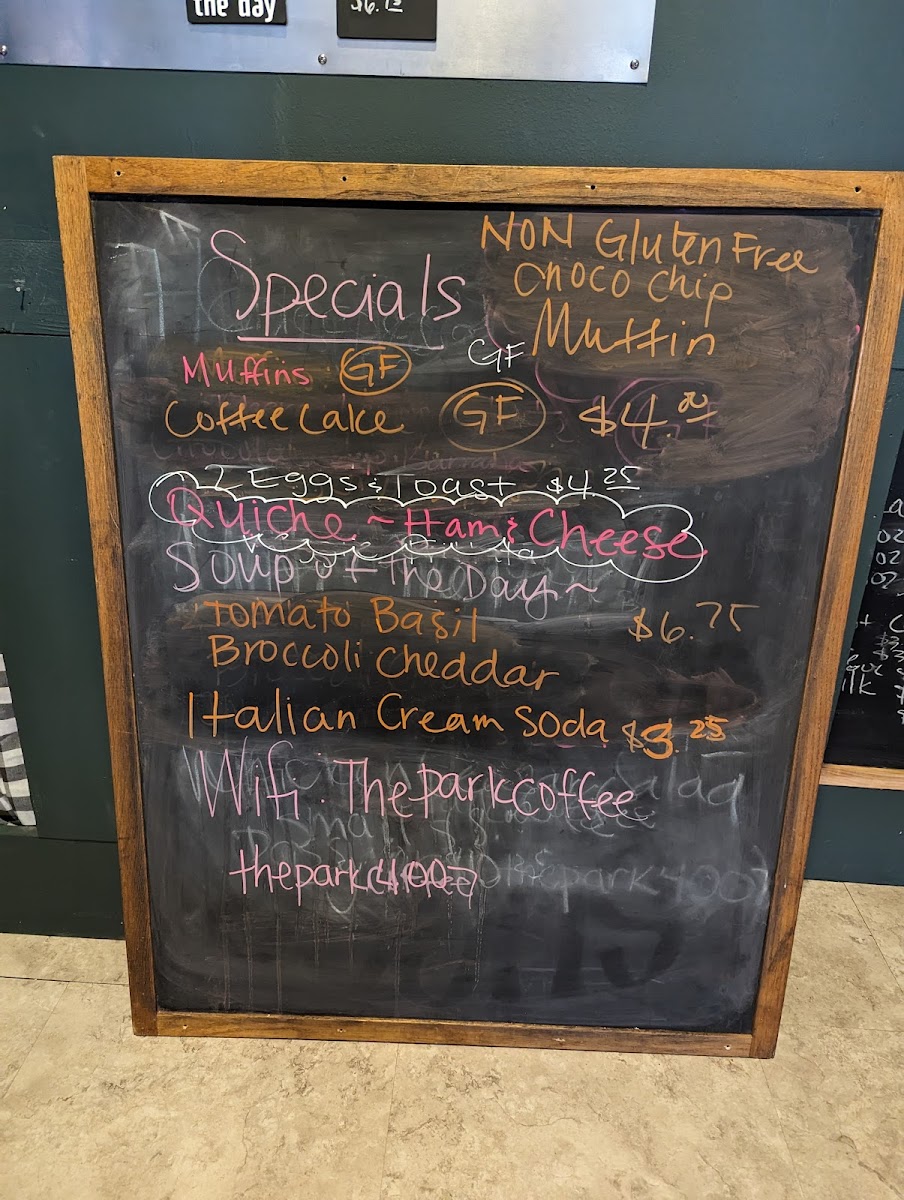 the day
$6.75
Specials
NON Gluten Free
Choco Chip
Muffin
Muffins GF
GF
Coffee Cake GF $4.00
2 Eggs & Toast $4.25
Quiche ~ Ham & Cheese
Soup of the Day ~
Tomato Basil $6.75
Broccoli Cheddar
Italian Cream Soda $3.25
Wifi: Theparkcoffee